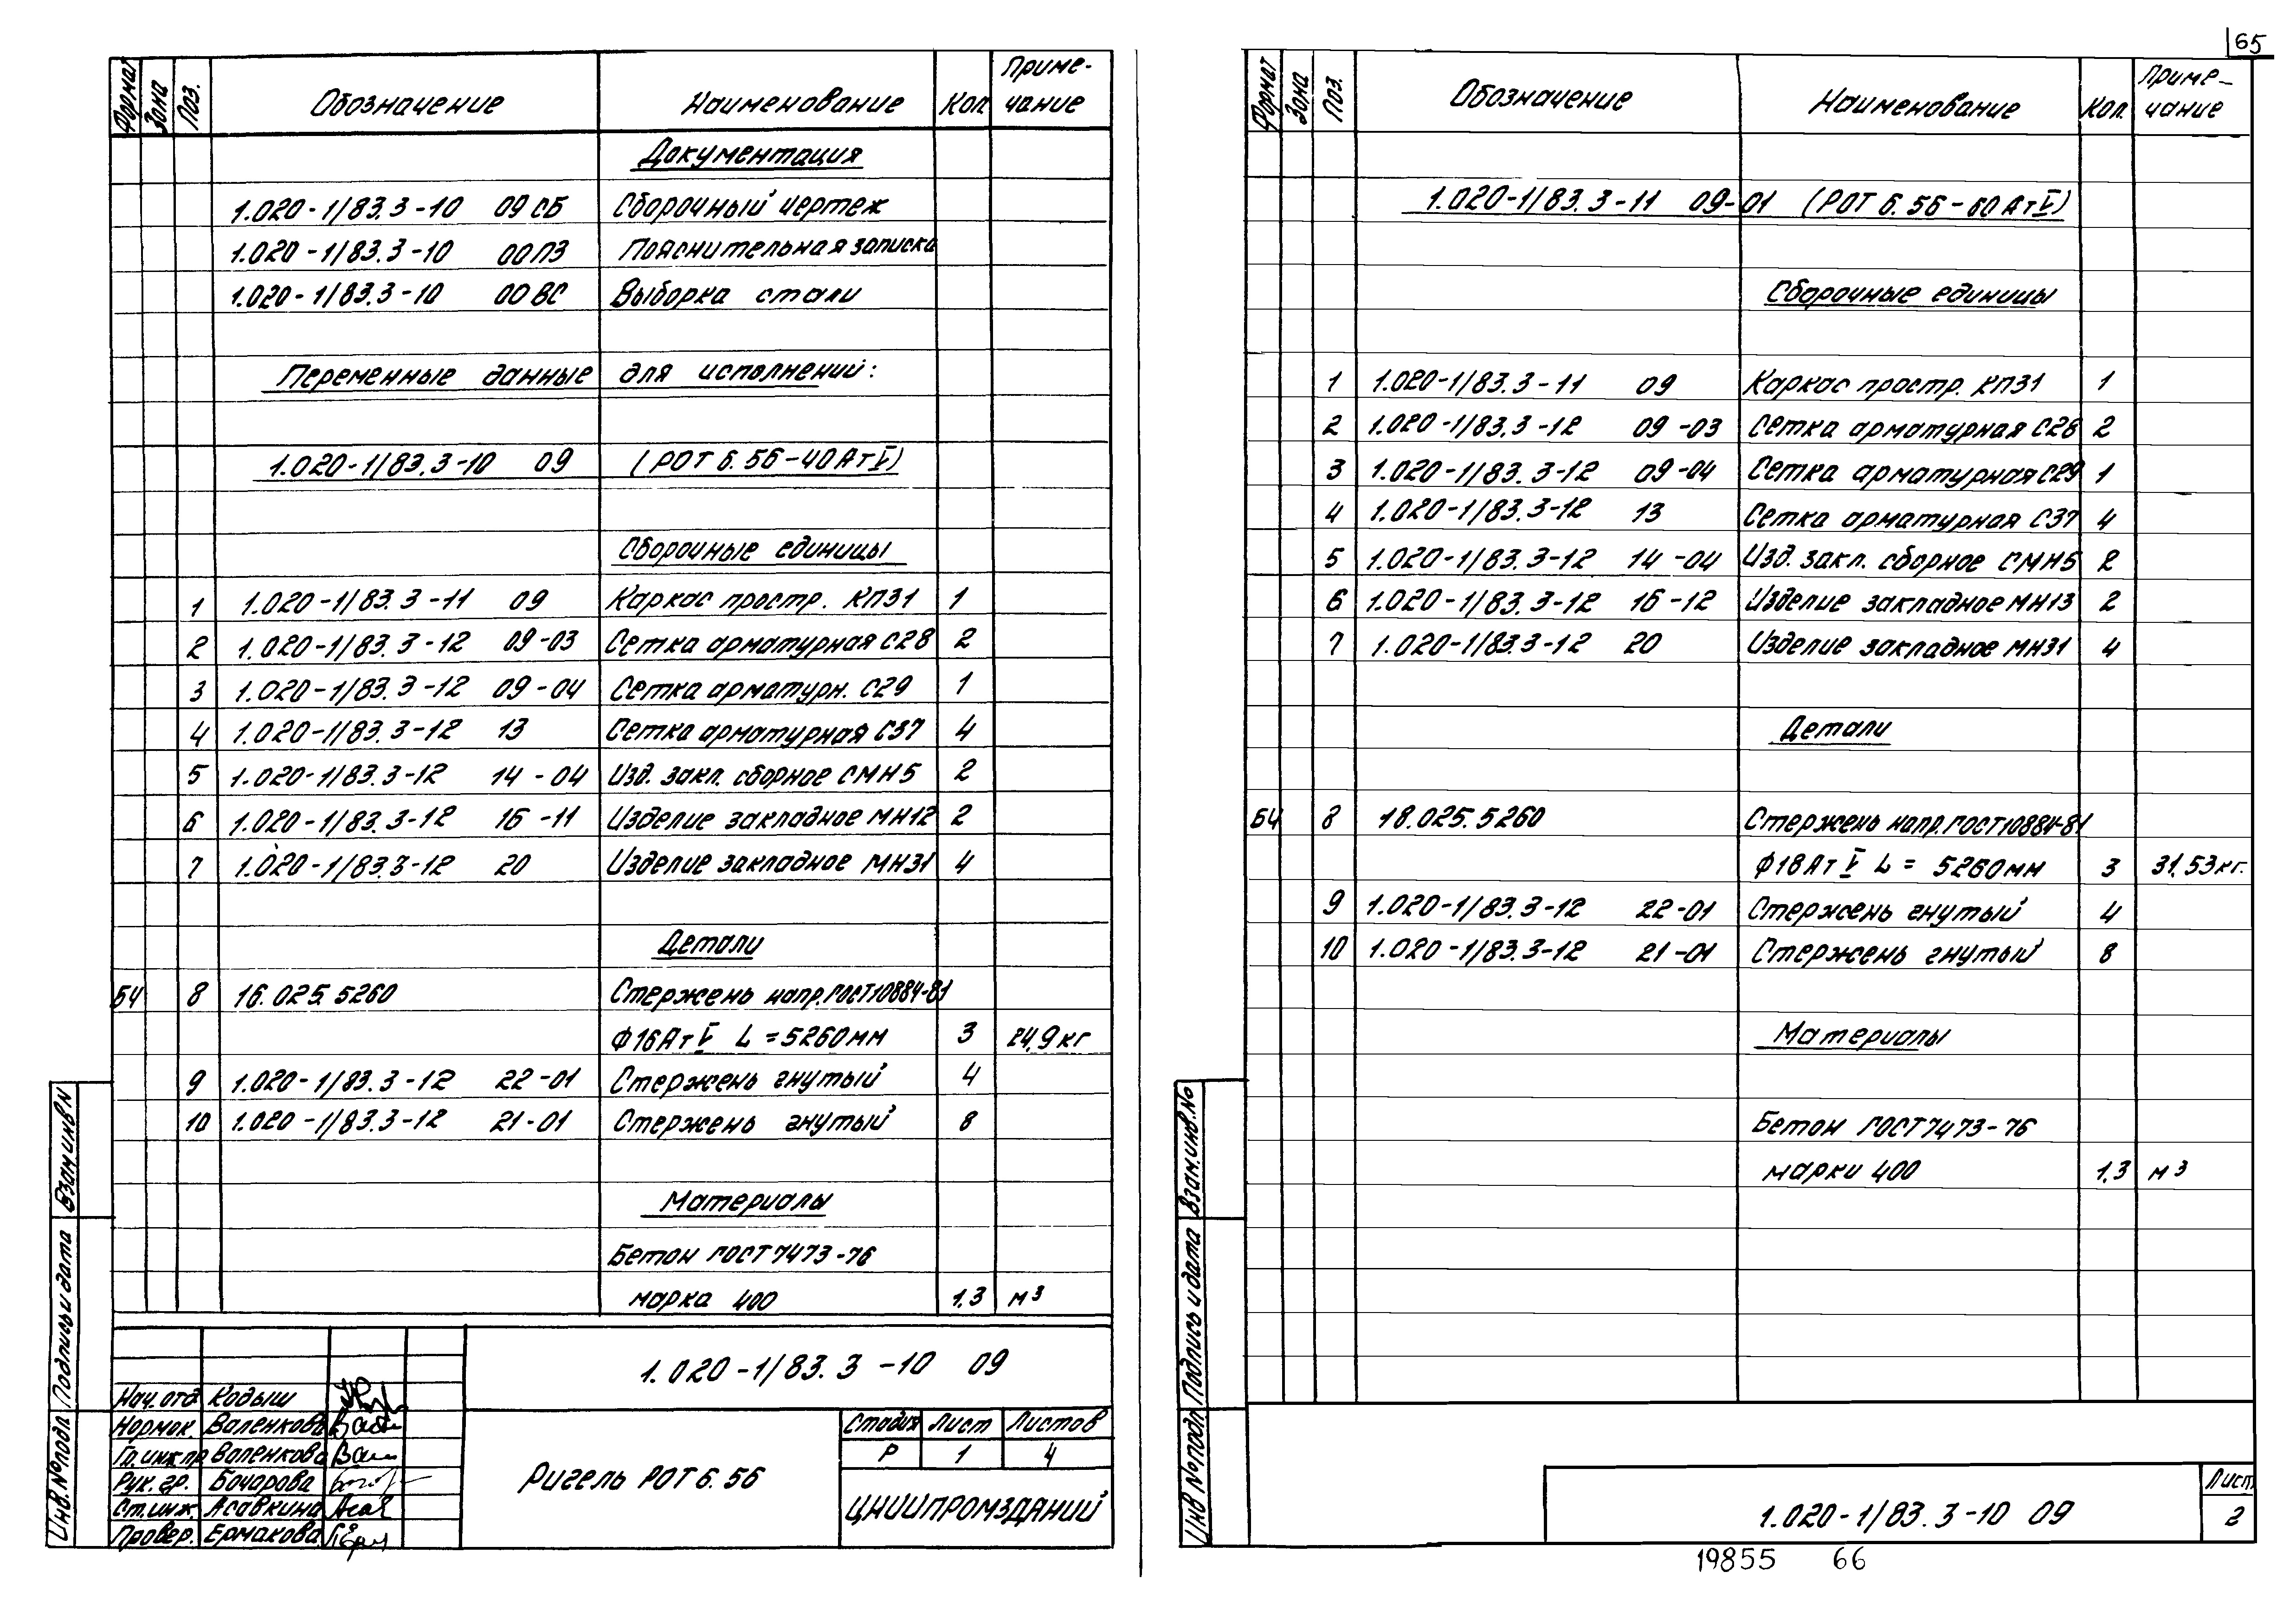 65
Формат Зона Поз. Обозначение Наименование Кол. Приме-чание
Документация
1.020-1/83.3-10 09 СБ Сборочный чертеж
1.020-1/83.3-10 00 ПЗ Пояснительная записка
1.020-1/83.3-10 00 ВС Выборка стали
Переменные данные для исполнений:
1.020-1/83.3-10 09 (РОТ 6.56-40 АтV)
Сборочные единицы
1 1.020-1/83.3-11 09 Каркас простр. КП31 1
2 1.020-1/83.3-12 09-03 Сетка арматурная С28 2
3 1.020-1/83.3-12 09-04 Сетка арматурн. С29 1
4 1.020-1/83.3-12 13 Сетка арматурная С37 4
5 1.020-1/83.3-12 14-04 Изд. закл. сборное СМН5 2
6 1.020-1/83.3-12 16-11 Изделие закладное МН12 2
7 1.020-1/83.3-12 20 Изделие закладное МН31 4
Детали
БЧ 8 16.025.5260 Стержень напр. ГОСТ 10884-81
Ф16АтV L=5260мм 3 24,9 кг
9 1.020-1/83.3-12 22-01 Стержень гнутый 4
10 1.020-1/83.3-12 21-01 Стержень гнутый 8
Материалы
Бетон ГОСТ 7473-76
марка 400 1,3 м³
1.020-1/83.3-10 09
Нач.отд Кодыш
Нормок. Валенкова
Гл.инж.пр Валенкова
Рук.гр. Бочарова
Ст.инж. Асавкина
Провер. Ермакова
Ригель РОТ 6.56
Стадия Лист Листов
Р 1 4
ЦНИИПРОМЗДАНИЙ
Инв.№подл. Подпись и дата Взам.инв №
Формат Зона Поз. Обозначение Наименование Кол. Приме-чание
1.020-1/83.3-11 09-01 (РОТ 6.56-60 АтV)
Сборочные единицы
1 1.020-1/83.3-11 09 Каркас простр. КП31 1
2 1.020-1/83.3-12 09-03 Сетка арматурная С28 2
3 1.020-1/83.3-12 09-04 Сетка арматурная С29 1
4 1.020-1/83.3-12 13 Сетка арматурная С37 4
5 1.020-1/83.3-12 14-04 Изд. закл. сборное СМН5 2
6 1.020-1/83.3-12 16-12 Изделие закладное МН13 2
7 1.020-1/83.3-12 20 Изделие закладное МН31 4
Детали
БЧ 8 18.025.5260 Стержень напр. ГОСТ 10884-81
Ф18АтV L = 5260мм 3 31,53 кг.
9 1.020-1/83.3-12 22-01 Стержень гнутый 4
10 1.020-1/83.3-12 21-01 Стержень гнутый 8
Материалы
Бетон ГОСТ 7473-76
марки 400 1,3 м³
Инв №подл. Подпись и дата Взам.инв.№
1.020-1/83.3-10 09
Лист
2
19855 66